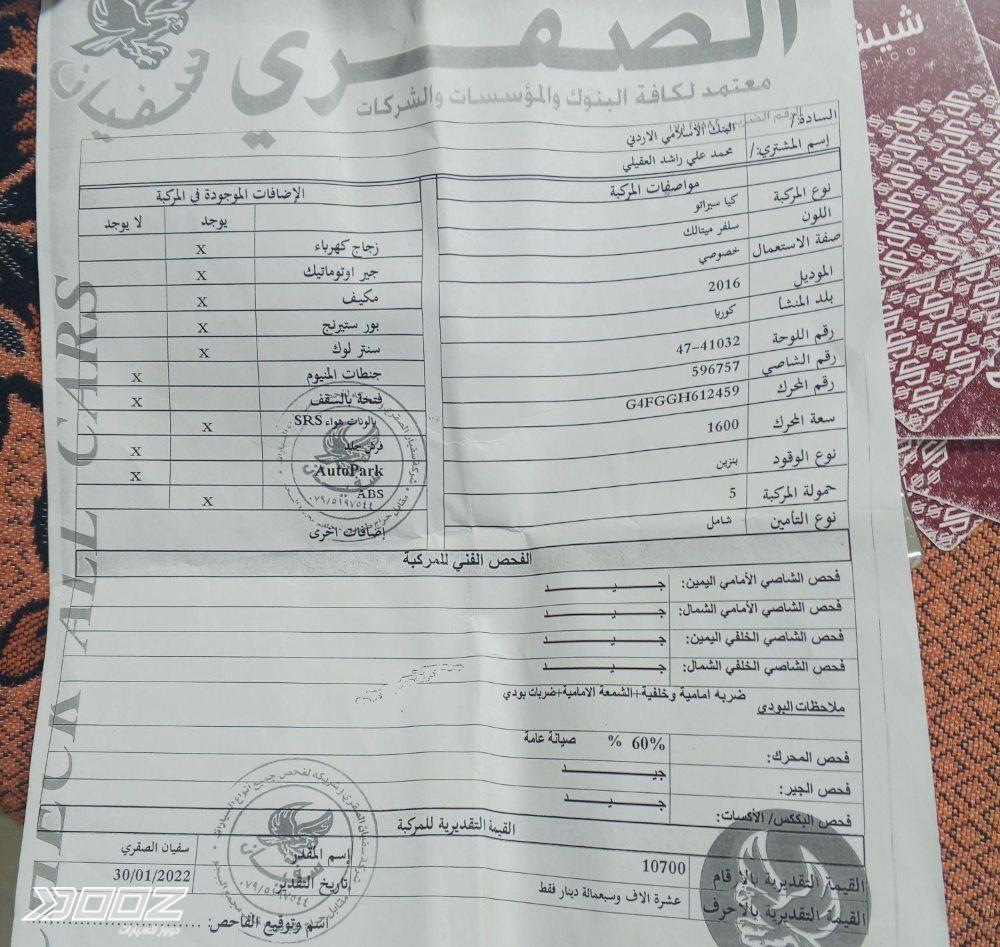 الصقري
سفيان
معتمد لكافة البنوك والمؤسسات والشركات
السادة:/ البنك الاسلامي الاردني
إسم المشتري:/ محمد علي راشد العقيلي
مواصفات المركبة
نوع المركبة كيا سيراتو
اللون سلفر ميتالك
صفة الاستعمال خصوصي
الموديل 2016
بلد المنشأ كوريا
رقم اللوحة 47-41032
رقم الشاصي 596757
رقم المحرك G4FGGH612459
سعة المحرك 1600
نوع الوقود بنزين
حمولة المركبة 5
نوع التأمين شامل
الإضافات الموجودة في المركبة
يوجد لا يوجد
زجاج كهرباء X
جير اوتوماتيك X
مكيف X
بور ستيرنج X
سنتر لوك X
جنطات المنيوم X
فتحة بالسقف X
بالونات هواء SRS X
فرش جلد X
AutoPark X
ABS X
إضافات اخرى
الفحص الفني للمركبة
فحص الشاصي الأمامي اليمين: جـــيـــد
فحص الشاصي الأمامي الشمال: جـــيـــد
فحص الشاصي الخلفي اليمين: جـــيـــد
فحص الشاصي الخلفي الشمال: جـــيـــد
ملاحظات البودي ضربه امامية وخلفية+الشمعة الامامية+ضربات بودي
فحص المحرك: 60% % صيانة عامة
فحص الجير: جيـــد
فحص البككس/ الأكسات: جـــيـــد
القيمة التقديرية للمركبة
القيمة التقديرية بالأرقام 10700
القيمة التقديرية بالأحرف عشرة الاف وسبعمائة دينار فقط
إسم المقدر سفيان الصقري
تاريخ التقدير 30/01/2022
اسم وتوقيع الفاحص:
CHECK ALL CARS
٠٧٩/٥١٩٧٥٤٤
شيش